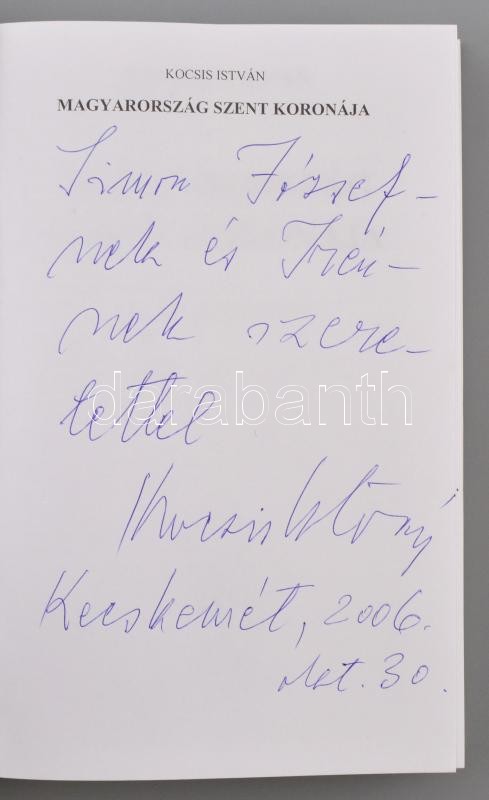 KOCSIS ISTVÁN
MAGYARORSZÁG SZENT KORONÁJA
Simon József-
nek és Irén-
nek szere-
tettel
darabanth
Kocsis István
Kecskemét, 2006.
okt. 30.